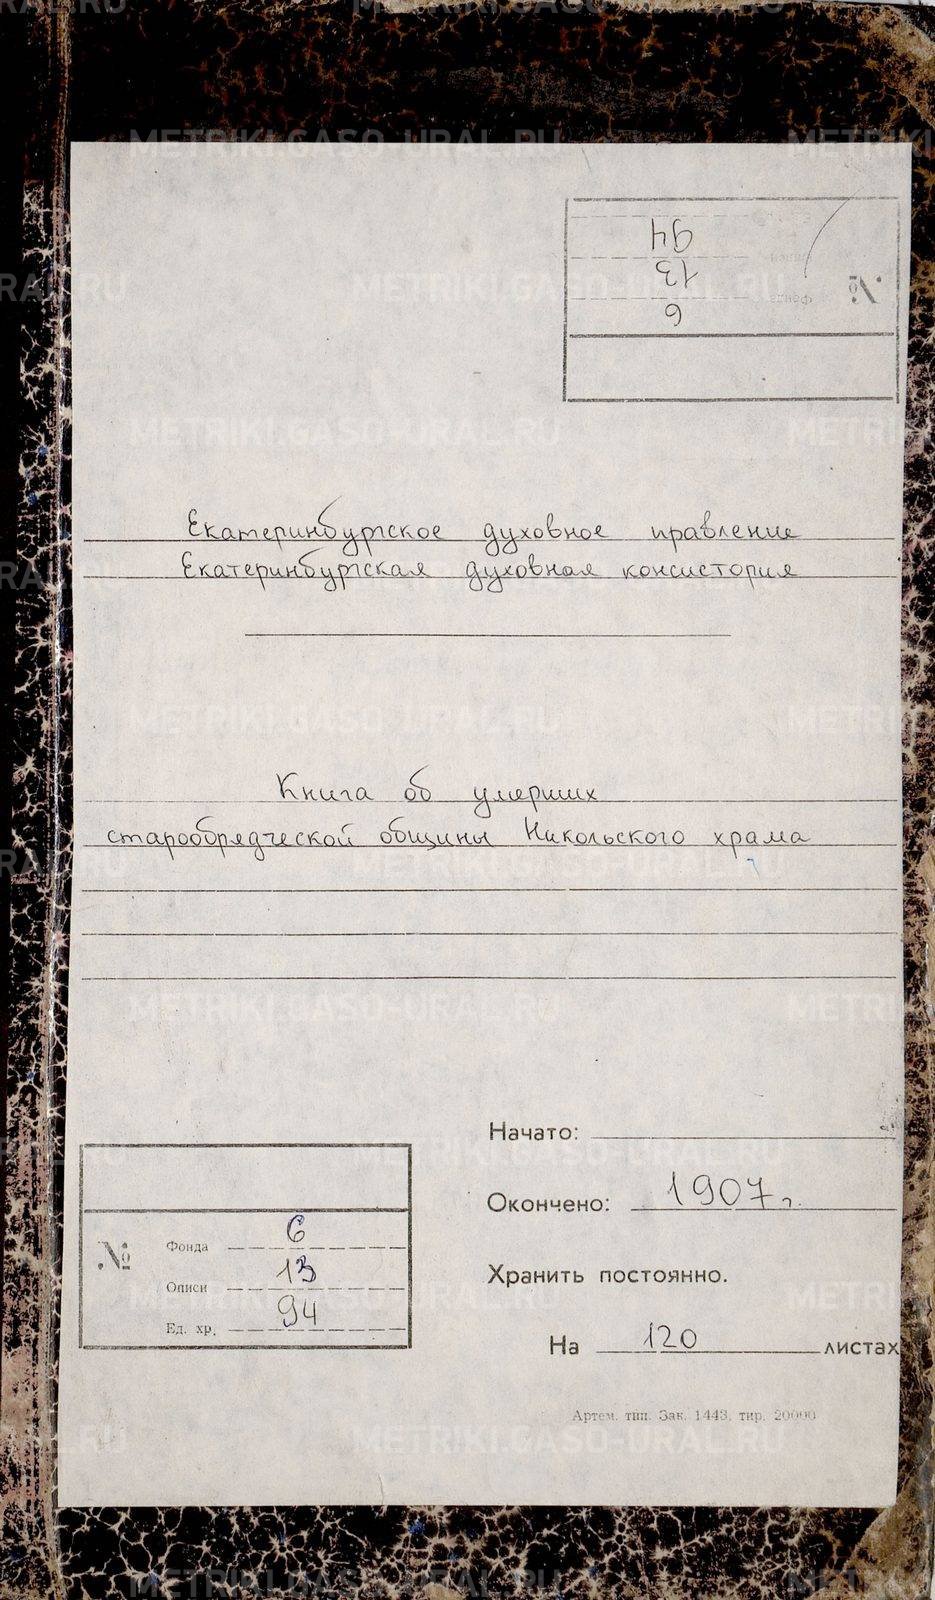 №
Фонда 6
Описи 13
Ед. хр. 94
Екатеринбургское духовное правление
Екатеринбургская духовная консистория
Книга об умерших
старообрядческой общины Никольского храма
Начато:
Окончено: 1907 г.
Хранить постоянно.
На 120 листах
№
Фонда 6
Описи 13
Ед. хр. 94
Артем. тип. Зак. 1443, тир. 20000
METRIKI.GASO-URAL.RU